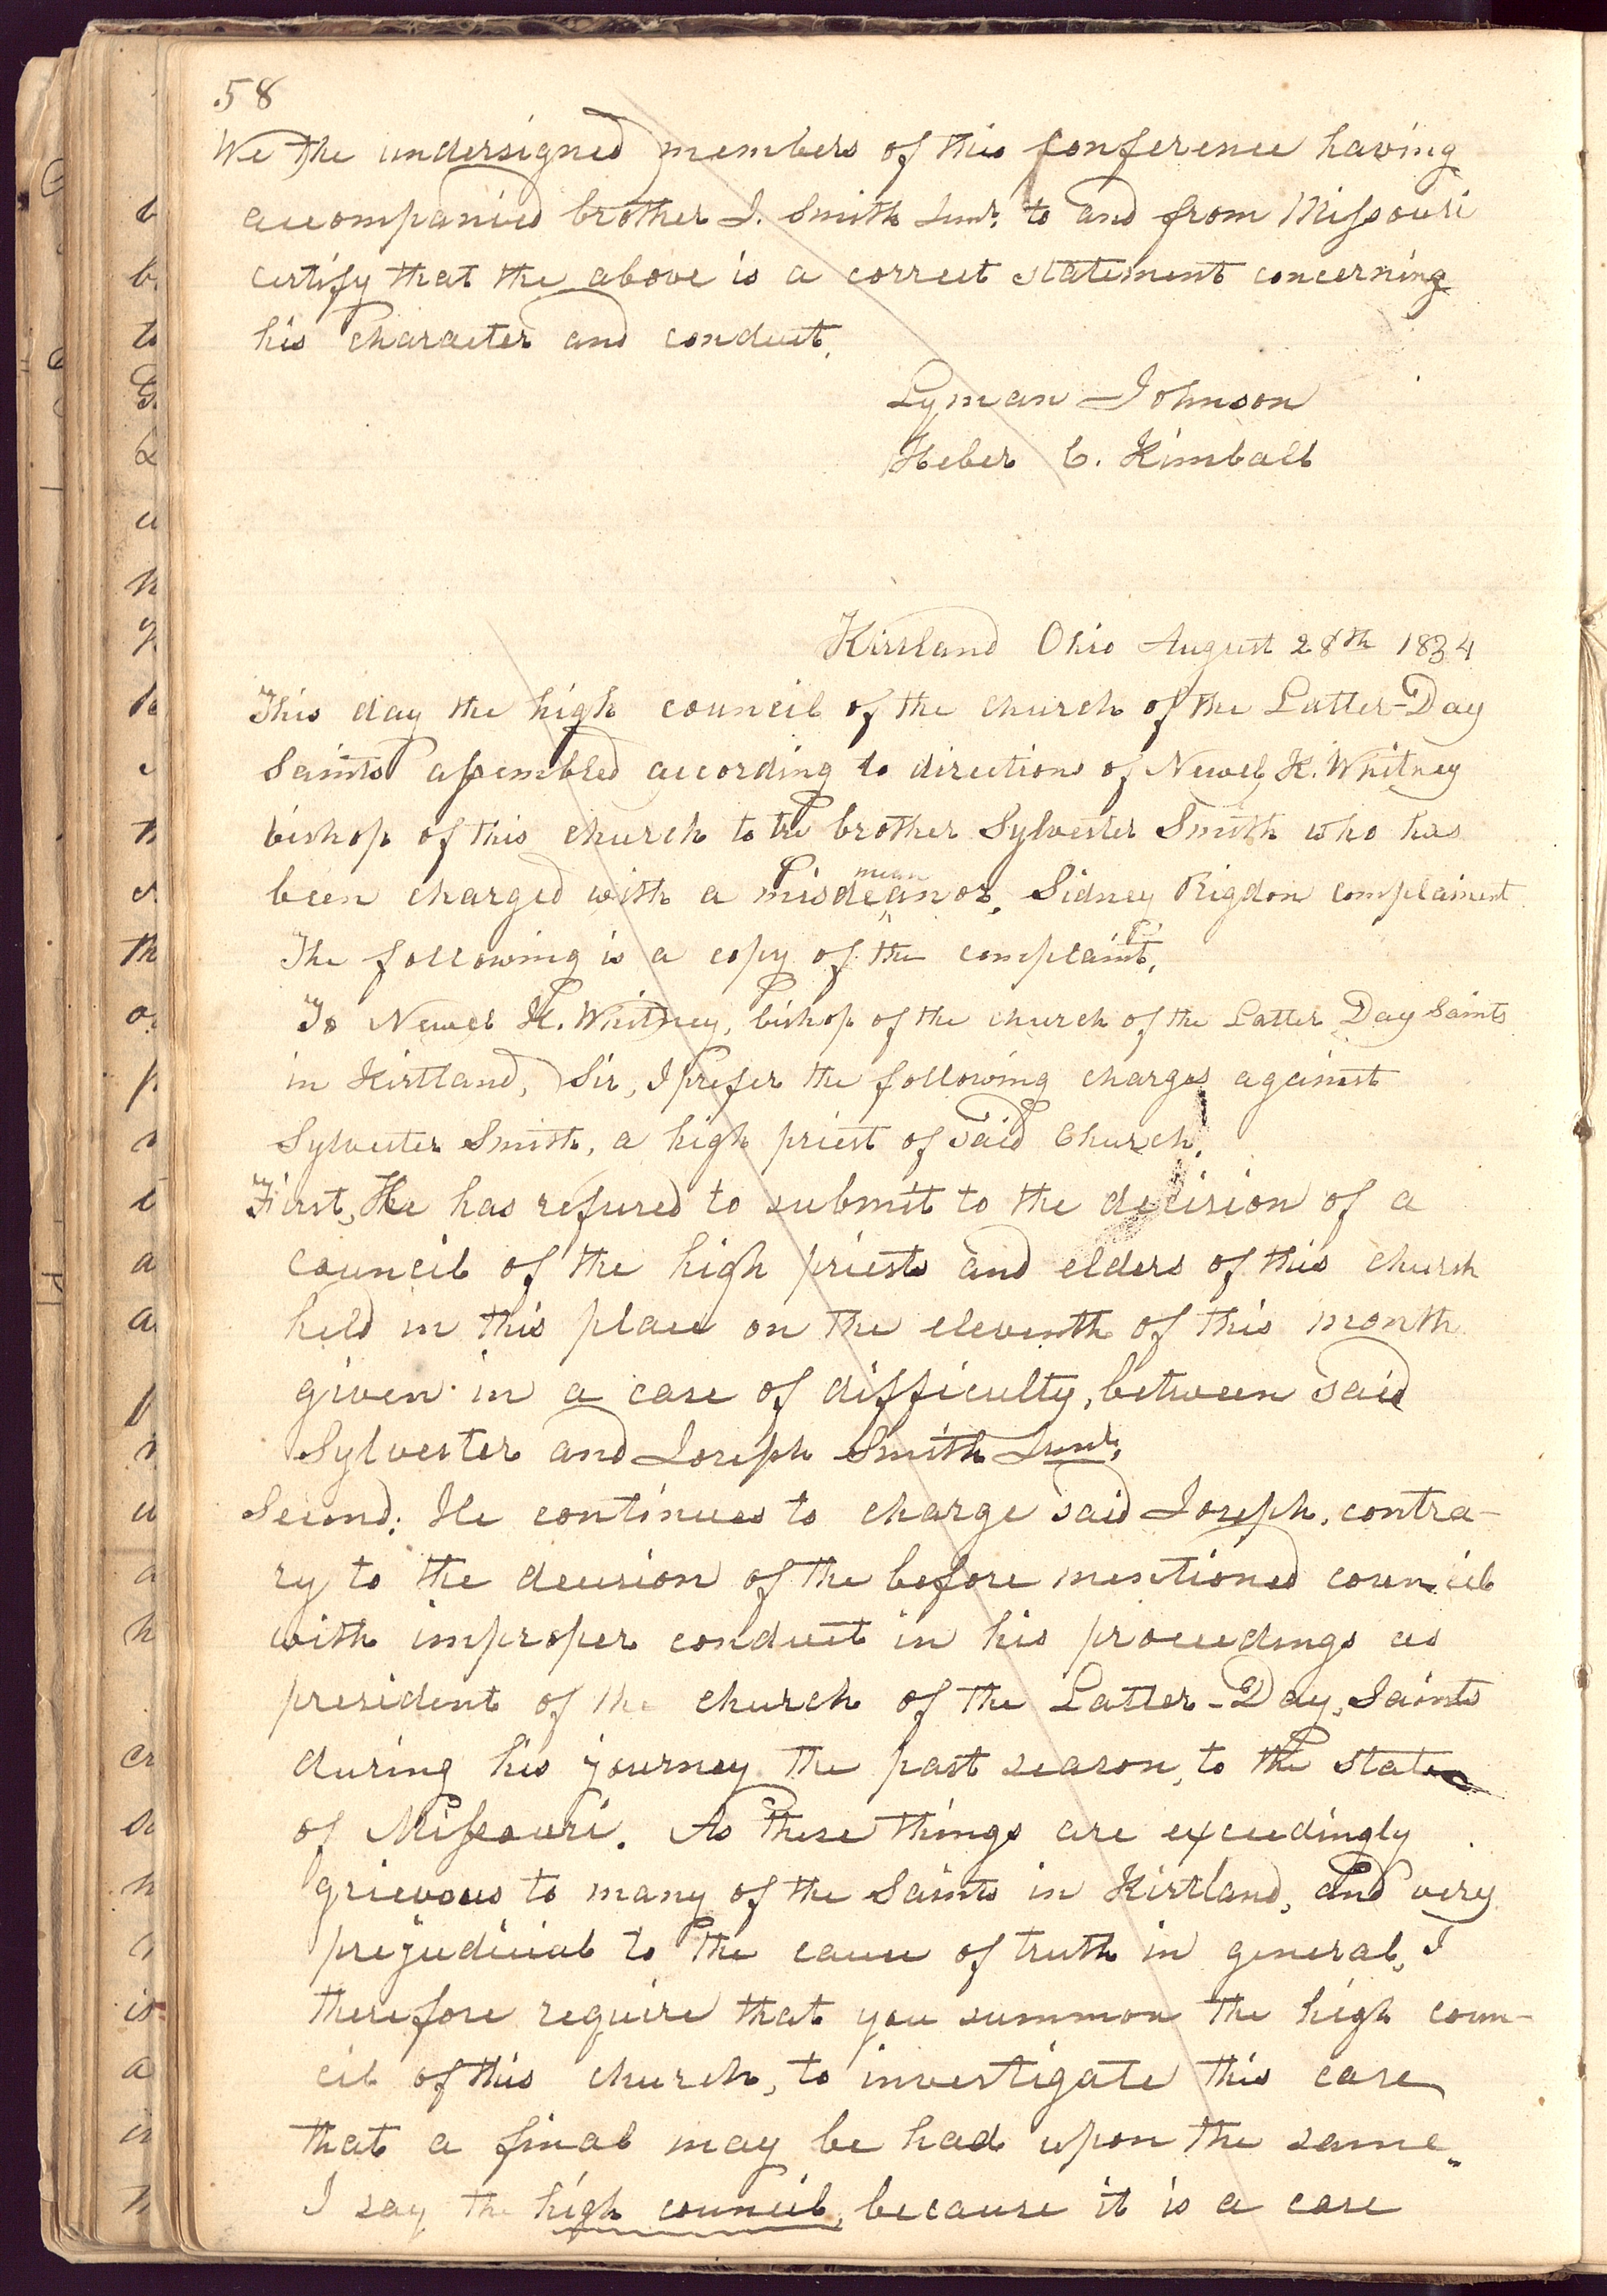 58
We the undersigned members of this conference having
accompanied brother J. Smith Junr. to and from Missouri
certify that the above is a correct statement concerning
his character and conduct.
Lyman Johnson
Heber C. Kimball
Kirtland Ohio August 28th 1834
This day the high council of the church of the Latter-Day
Saints assembled according to directions of Newel K. Whitney
bishop of this church to try brother Sylvester Smith who has
mean
been charged with a misdeanor, Sidney Rigdon complainent
The following is a copy of the complaint.
To Newel K. Whitney, bishop of the church of the Latter Day Saints
in Kirtland, Sir, I prefer the following charges against
Sylvester Smith, a high priest of said Church.
First, He has refused to submit to the decision of a
council of the high priests and elders of this church
held in this place on the eleventh of this month
given in a case of difficulty, between said
Sylvester and Joseph Smith Junr.
Second: He continues to charge said Joseph, contra-
ry to the decision of the before mentioned council
with improper conduct in his proceedings as
president of the church of the Latter-Day, Saints
during his journey the past season, to the state
of Missouri. As these things are exceedingly
grievous to many of the Saints in Kirtland, and very
prejudicial to the cause of truth in general, I
therefore require that you summon the high coun-
cil of this church, to investigate this case
that a final may be had upon the same.
I say the high council, because it is a case